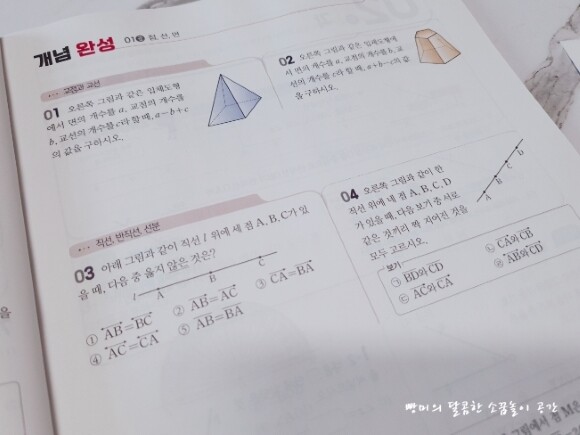 개념 완성
01강 점, 선, 면
교점과 교선
01 오른쪽 그림과 같은 입체도형
에서 면의 개수를 a, 교점의 개수를
b, 교선의 개수를 c라 할 때, a-b+c
의 값을 구하시오.
02 오른쪽 그림과 같은 입체도형에
서 면의 개수를 a, 교점의 개수를 b, 교
선의 개수를 c라 할 때, a+b-c의 값
을 구하시오.
직선, 반직선, 선분
03 아래 그림과 같이 직선 l 위에 세 점 A, B, C가 있
을 때, 다음 중 옳지 않은 것은?
l A B C
① AB=BC ② AB=AC ③ CA=BA
④ AC=CA ⑤ AB=BA
04 오른쪽 그림과 같이 한
직선 위에 네 점 A, B, C, D
가 있을 때, 다음 보기 중 서로
같은 것끼리 짝 지어진 것을
모두 고르시오.
A B C D
보기
㉠ BD와 CD ㉡ CA와 CB
㉢ AC와 CA ㉣ AB와 CD
빵미의 달콤한 소꿉놀이 공간